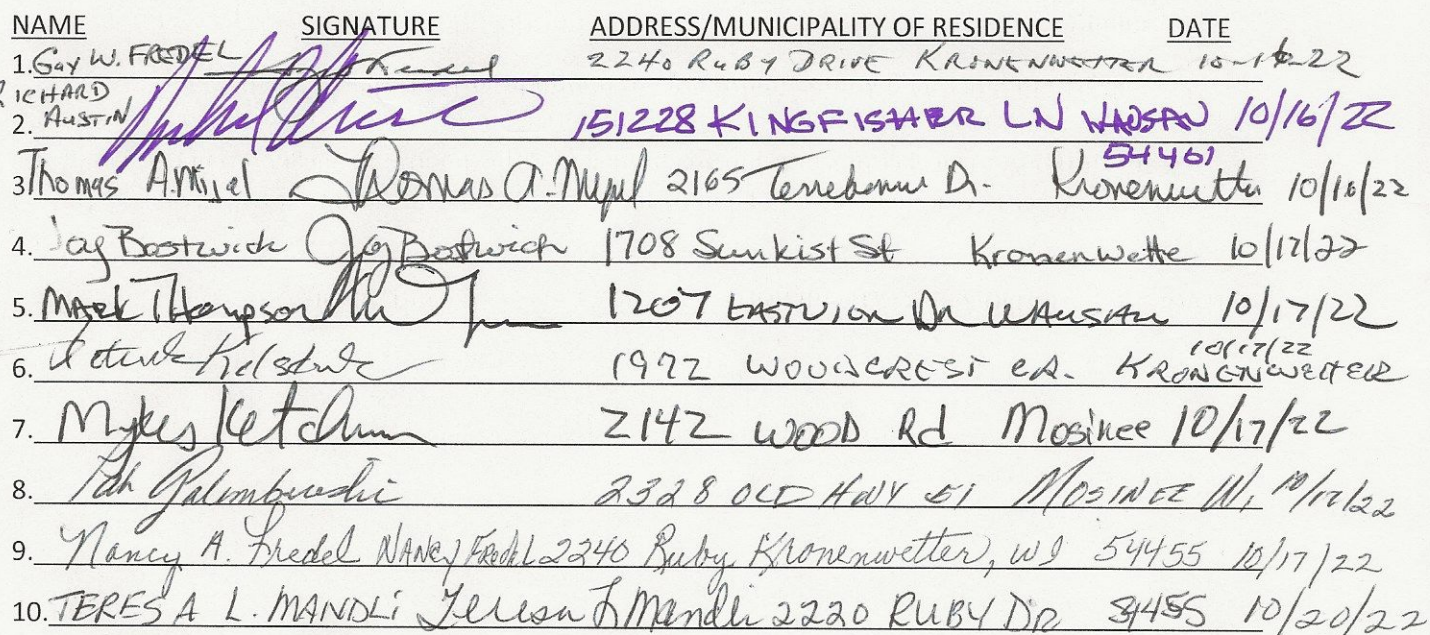 NAME SIGNATURE ADDRESS/MUNICIPALITY OF RESIDENCE DATE
1. Gay W. FREDEL 2240 RUBY DRIVE KRONENWETTER 10-16-22
2. RICHARD AUSTIN 151228 KINGFISHER LN WAUSAU 54401 10/16/22
3 Thomas A. Thomas A. 2165 Terrebonne Dr. Kronenwetter 10/16/22
4. Jay Bostwick Jay Bostwick 1708 Sunkist St Kronenwette 10/17/22
5. MARK THompson 1207 Dr WAUSAU 10/17/22
6. 1972 WOODCREST KRONENWETTER 10/17/22
7. Mykes Ketchum 2142 WOOD Rd Mosinee 10/17/22
8. 2328 OLD HWY 51 MOSINEE WI 10/17/22
9. Nancy A. Fredel NANCY FREDEL 2240 Ruby Kronenwetter, WI 54455 10/17/22
10. TERESA L. MANDLI Teresa L Mandli 2220 RUBY DR 54455 10/20/22